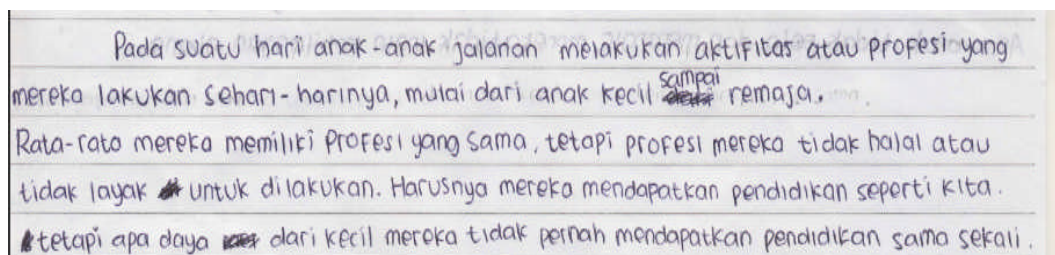 Pada suatu hari anak-anak jalanan melakukan aktifitas atau profesi yang
mereka lakukan sehari-harinya, mulai dari anak kecil sampai remaja.
Rata-rata mereka memiliki profesi yang sama, tetapi profesi mereka tidak halal atau
tidak layak untuk dilakukan. Harusnya mereka mendapatkan pendidikan seperti kita.
tetapi apa daya dari kecil mereka tidak pernah mendapatkan pendidikan sama sekali.